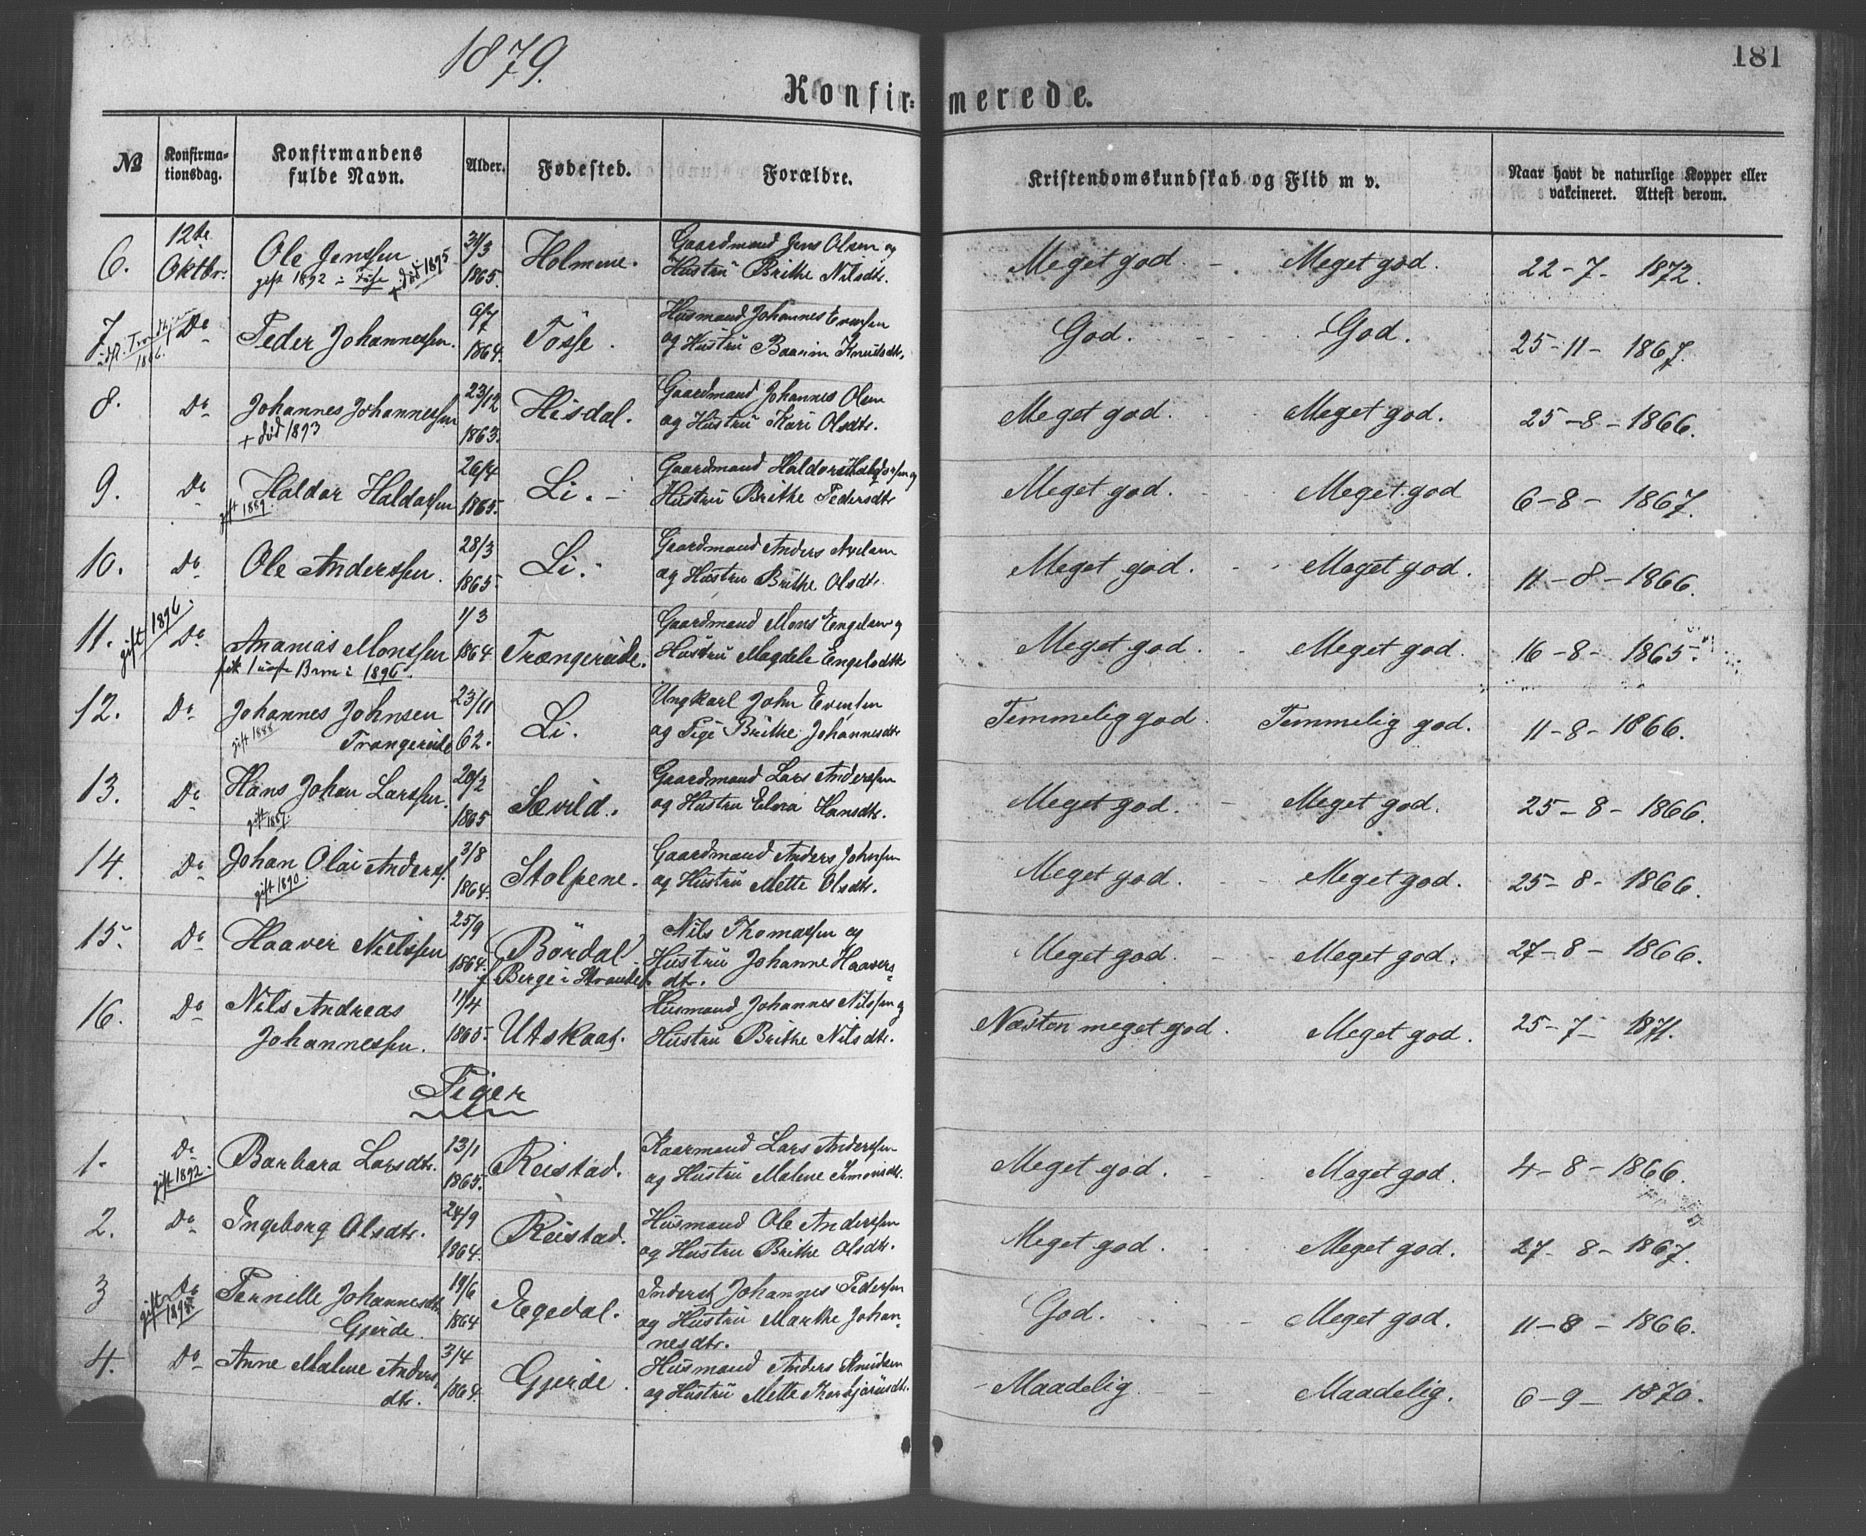 1879.
181
Konfir=merede.
№ Konfirma-tionsdag. Konfirmandens fulde Navn. Alder. Fødested. Forældre. Kristendomskundskab og Flid m v. Naar havt de naturlige Kopper eller vakcineret. Attest derom.
6. 12te Oktbr. Ole Jenssen 31/3 1865. Holmene. Gaardmand Jens Olsen og Hustru Brithe Nilsdt. Meget god - Meget god. 22-7- 1872.
gift 1892 i Fuse + død 1895
7. Do Peder Johannessen. 9/7 1864. Tösse. Husmand Johannes Evensen og Hustru Knutsdt. God. - - - God. 25-11- 1867.
1886.
8. Do Johannes Johannessen 23/12 1863. Hisdal. Gaardmand Johannes Olsen og Hustru Kari Olsdtr. Meget god. - - Meget god. 25-8-1866.
+ død 1893
9. Do Haldor Haldorsen 26/4 1865. Li. Gaardmand Haldor Haldorsen og Hustru Brithe Pedersdt Meget god. - Meget god 6-8- 1867.
gift 1889.
10. Do Ole Anderssen. 28/3 1865. Li. Gaardmand Anders og Hustru Brithe Olsdt. Meget god. - - Meget god. 11-8-1866.
11. Do Ananias Monssen 1/3 1864 Trængereide. Gaardmand Mons Engelsen og Hustru Magdele Engelsdtr Meget god. - Meget god. 16-8- 1865.
gift 1896.
fik 1 uægte Brn i 1896.
12. Do Johannes Johnsen Trængereide 23/11 62. Li. Ungkarl John Evensen og Pige Brithe Johannesdtr Temmelig god. Temmelig god. 11-8-1866.
gift 1888
13. Do Hans Johan Larssen. 20/2 1865 Sævild. Gaardmand Lars Anderssen og Hustru Hansdtr. Meget god - Meget god. 25-8-1866.
gift 1887.
14. Do Johan Olai Anderss. 3/8 1864. Stolpene. Gaardmand Anders Johnsen og Hustru Mette Olsdtr. Meget god - - Meget god. 25-8-1866.
gift 1890
15. Do Haaver Nielssen 25/9 1864. Bördal f. Berge i Nils Thomassen og Hustru Johanne Haavers=dtr. Meget god. - - Meget god. 27-8-1866.
16. Do Nils Andreas Johannessen. 11/4 1865. Utskaag. Husmand Johannes Nilssen og Hustru Brithe Nilsdtr. Næsten meget god. Meget god. 25-7- 1871.
Piger
1. Do Barbara Larsdtr. 13/1 1865. Reistad. Kaarmand Lars Anderssen og Hustru Malene Simonsdt. Meget god. - Meget god. 4-8-1866.
gift 1892.
2. Do Ingeborg Olsdtr. 24/9 1864. Reistad. Husmand Ole Anderssen og Hustru Brithe Olsdtr. Meget god. - - Meget god. 27-8-1867.
3 Do Pernille Johannesdtr. Gjerde. 19/6 1864 Egedal. Inderst Johannes Pedersen og Hustru Marthe Johan=nesdtr. God. - - - Meget god. 11-8-1866.
4. Do Anne Malene Anders dtr. 3/4 1864. Gjerde. Husmand Anders Knudsen og Hustru Mette - Maadelig - Maadelig. 6-9- 1870.